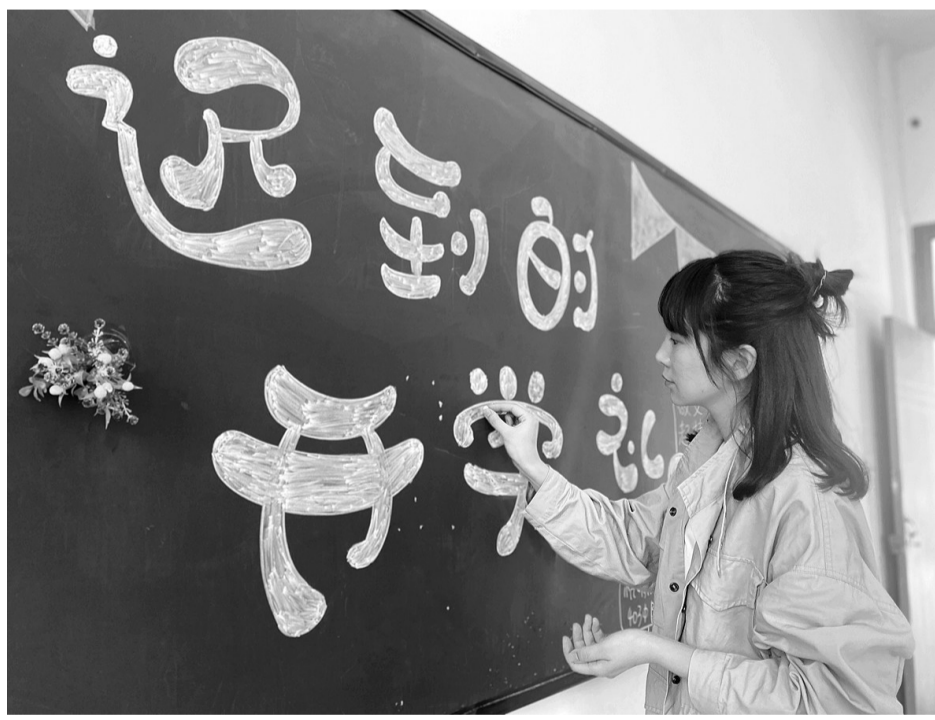 迟到的
开学礼